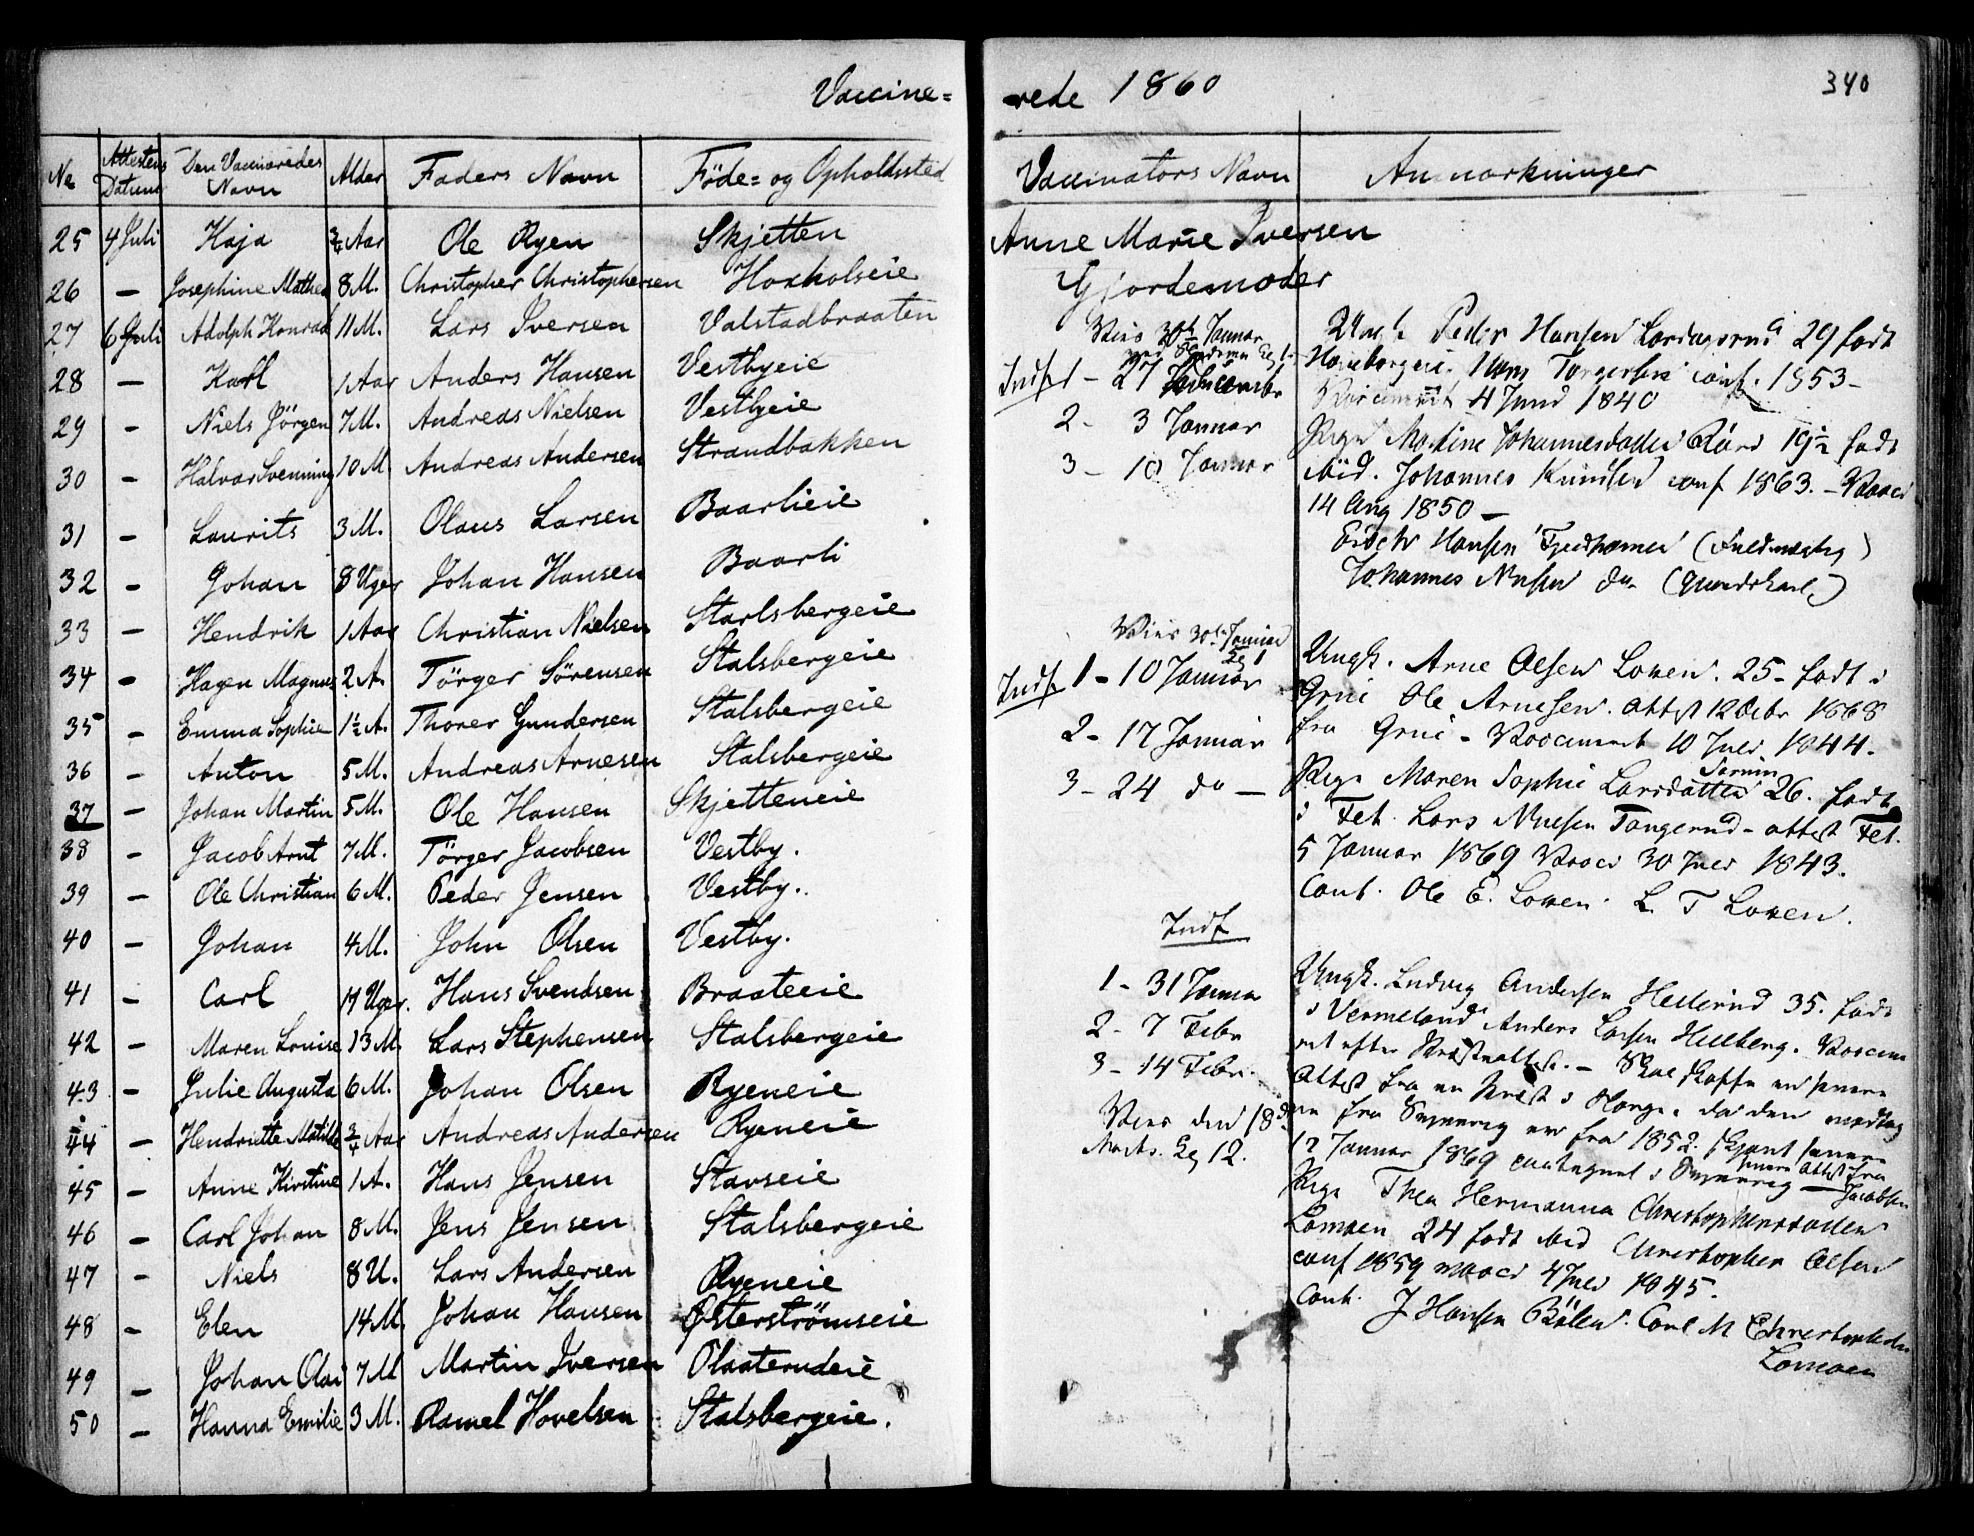 Vaccine=
No Attestens Datum Den Vaccineredes Navn Alder Faders Navn Föde= og Opholdssted
25 4 Juli Kaja 3/4 Aar Ole Ryen Skjetten
26 — Josephine Mathea 8 M. Christopher Christophersen Hoxholseie
27 6 Juli Adolph Konrad 11 M. Lars Iversen Valstadbraaten
28 — Karl 1 Aar Anders Hansen Vestbyeie
29 — Niels Jörgen 7 M. Andreas Nielsen Vestbyeie
30 — Halvor Svenning 10 M. Andreas Andersen Strandbakken
31 — Laurits 3 M. Olaus Larsen Baarlieie
32 — Johan 8 Uger Johan Hansen Baarli
33 — Hendrik 1 Aar Christian Nielsen Starlsbergeie
34 — Hagen Magnus 2 A. Törger Sörensen Stalsbergeie
35 — Emma Sophie 1 1/2 A. Thorer Gundersen Stalsbergeie
36 — Anton 5 M. Andreas Arnesen Stalsbergeie
37 — Johan Martin 5 M. Ole Hansen Skjetteneie
38 — Jacob Arnt 7 M. Törger Jacobsen Vestby.
39 — Ole Christian 6 M. Peder Jensen Vestby.
40 — Johan 4 M. John Olsen Vestby.
41 — Carl 14 Uger. Hans Svendsen Braateeie
42 — Maren Louise 13 M. Lars Stephensen Stalsbergeie
43 — Julie Augusta 6 M. Johan Olsen Ryeneie
44 — Hendriette Matilde 3/4 Aar Andreas Andersen Ryeneie
45 — Anne Kirstine 1 A. Hans Jensen Stavseie
46 — Carl Johan 8 M. Jens Jensen Stalsbergeie
47 — Niels 8 U. Lars Andersen Ryeneie
48 — Elen 14 M. Johan Hansen Østerströmseie
49 — Johan Olai 7 M Martin Iversen Olaaterudeie
50 — Hanna Emilie 3 M. Ramel Hovelsen Stalsbergeie.
rede 1860
340
Vaccinators Navn Anmærkninger
Anne Marie Iversen
Gjordemoder
Vies 30te Januar
Indf 1 - 27
2 - 3 Januar
3 - 10 Januar
Ungk. Peder Hansen 29 født
Hans conf. 1853 -
4 Juni 1840
Pige Johannesdatter 19 1/2 født
ibid. Johannes Knudsen conf 1863. - Vacci
14 Aug 1850 —
Hansen
Johannes Nilsen do
Vies 30te Januar
Indf 1 - 10 Januar
2 - 17 Januar
3 - 24 do —
Ungk. Arne Olsen Loken. 25 - født i
Grue Ole Arnesen. attest 12 Debr 1868
fra Grue - Vaccineret 10 Juli 1844.
Pige Maren Sophie Larsdatter 26. født
i Fet. Lars Nilsen Tangerud - attest Fet.
5 Januar 1869 Vacci 30 Juli 1843.
Caut. Ole E. Loken. L T Loken.
Indf
1 - 31 Januar
2 - 7 Febr
3 - 14 Febr.
Vies den 18de
Marts. 12.
Ungk. Ludvig Andersen Hellerud 35. født
i Vermeland Anders Larsen Hellberg. Vaccine
ret efter Præsteattest. - Skal skaffe en senere
Attest fra en Præst i Norge, da den
fra er fra 1852.
12 Januar 1869 i
Pige Thea Hermanna Christophersdatter
Lomoen 24 født ibid Christopher Olsen
conf 1859 vacci 4 Juli 1845.
Caut. J Hansen Bölen. Carl M Christophersen
Lomoen